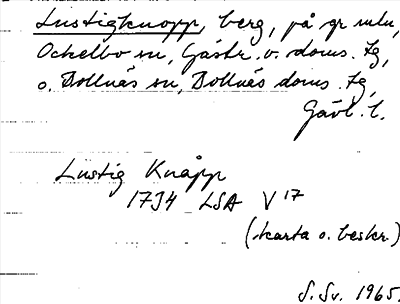 Lustigknopp, berg, på gr mlu,
Ockelbo sn, Gästr. v. doms. tg,
o. Bollnäs sn, Bollnäs doms. tg,
Gävl. l.
Lustig Knåpp
1734 LSA V 17
(karta o. beskr.)
S. Sv. 1965.